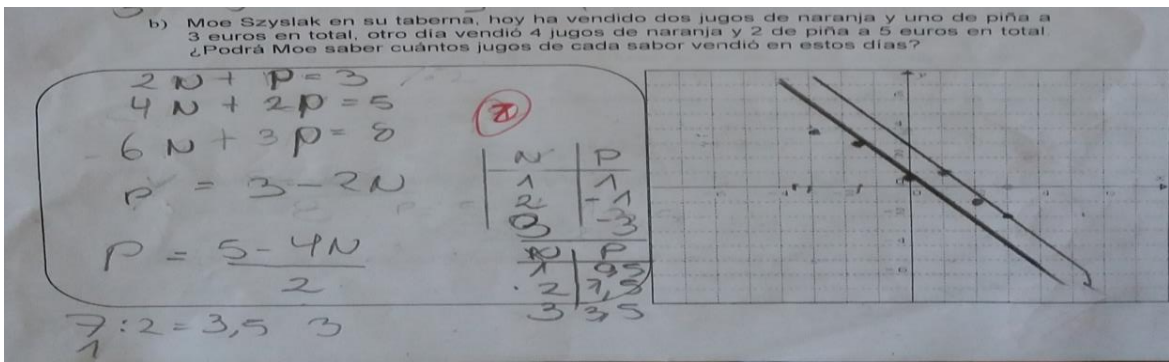 b) Moe Szyslak en su taberna, hoy ha vendido dos jugos de naranja y uno de piña a
3 euros en total, otro día vendió 4 jugos de naranja y 2 de piña a 5 euros en total.
¿Podrá Moe saber cuántos jugos de cada sabor vendió en estos días?
2N + P = 3
4N + 2p = 5
6N + 3p = 8
P = 3 - 2N
P = 5 - 4N
2
N P
1 1
2 -1
3 -3
N P
1 0,5
2 1,5
3 3,5
7 : 2 = 3,5 3
1